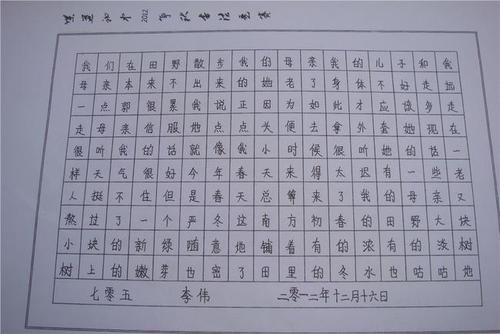 2012 年秋书法竞赛
我们在田野散步我的母亲我的儿子和我
母亲本来不出来的她老了身体不好走远
一点很累我说正因为如此才应该多走
走母亲信服地点点头便去拿外套她现在
很听我的话就像我小时候很听她的话一
样天气很好今年春天来得太迟有一些老
人挺不住但是春天总算来了我的母亲又
熬过了一个严冬这南方初春的田野大块
小块的新绿随意地铺着有的浓有的淡树
树上的嫩芽也密了田里的冬水也咕咕地
七零五 李伟 二零一二年十二月十六日